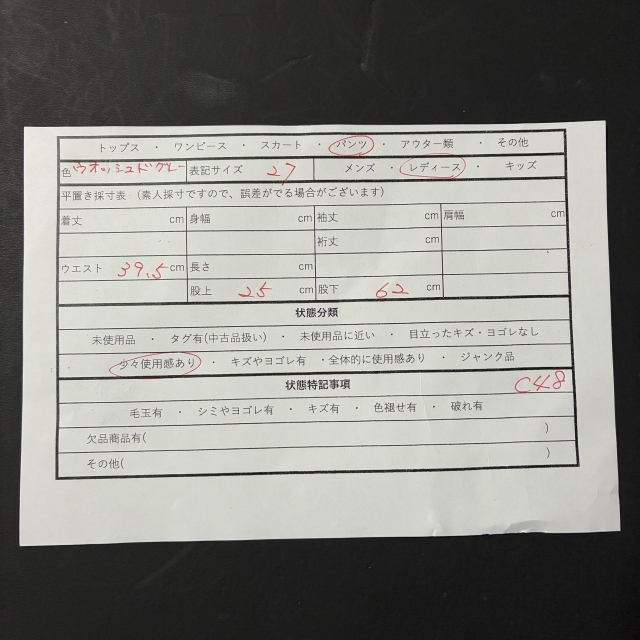 トップス ・ ワンピース ・ スカート ・ パンツ ・ アウター類 ・ その他
色 ウオッシュドグレー 表記サイズ 27 メンズ ・ レディース ・ キッズ
平置き採寸表 (素人採寸ですので、誤差がでる場合がございます)
着丈 cm 身幅 cm 袖丈 cm 肩幅 cm
裄丈 cm
ウエスト 39.5 cm 長さ cm
股上 25 cm 股下 62 cm
状態分類
未使用品 ・ タグ有(中古品扱い) ・ 未使用品に近い ・ 目立ったキズ・ヨゴレなし
少々使用感あり ・ キズやヨゴレ有 ・全体的に使用感あり ・ ジャンク品
状態特記事項 C48
毛玉有 ・ シミやヨゴレ有 ・ キズ有 ・ 色褪せ有 ・ 破れ有
欠品商品有( )
その他( )